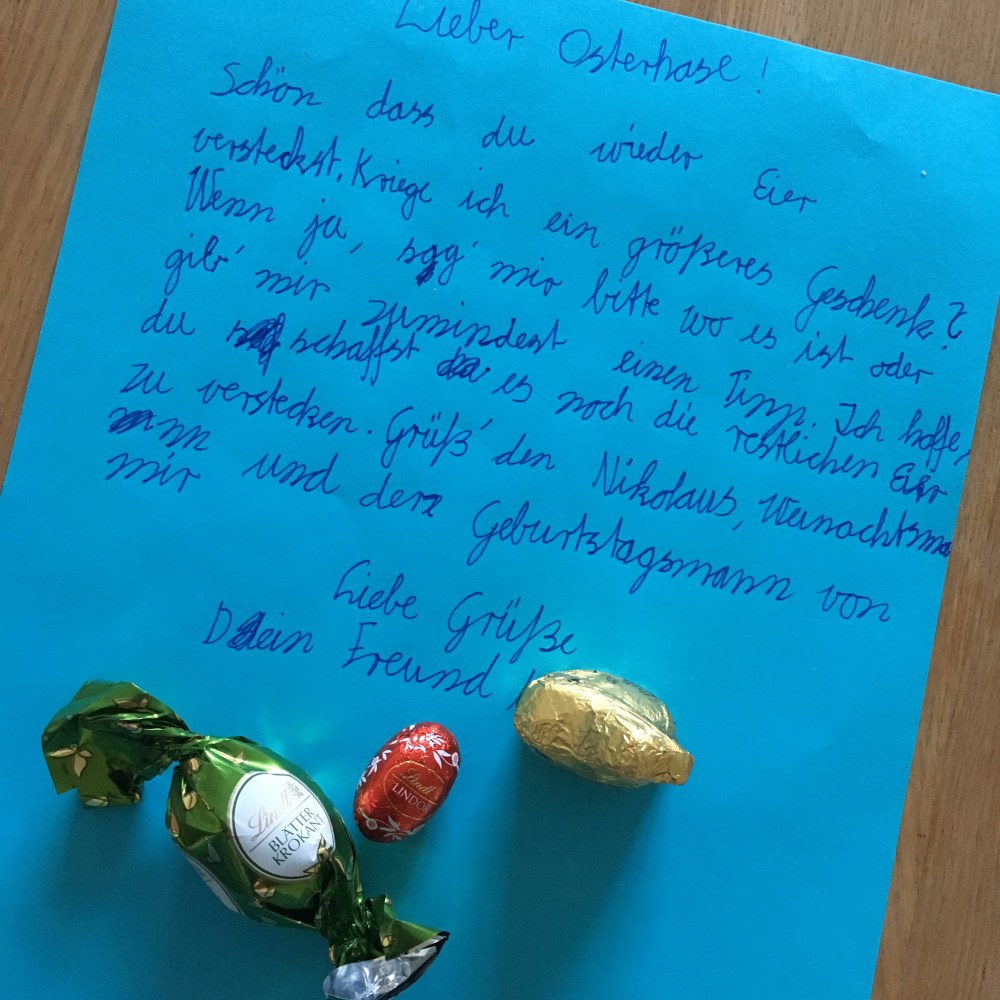 Lieber Osterhase!
Schön dass du wieder Eier
versteckst. Kriege ich ein größeres Geschenk?
Wenn ja, sag' mir bitte wo es ist oder
gib' mir zumindest einen Tipp. Ich hoffe,
du schaffst es noch die restlichen Eier
zu verstecken. Grüß' den Nikolaus, Weinachtsma
nn und der Geburtstagsmann von
mir
Liebe Grüße
Dein Freund
Lindt
BLÄTTER
KROKANT
Lindt
LINDOR